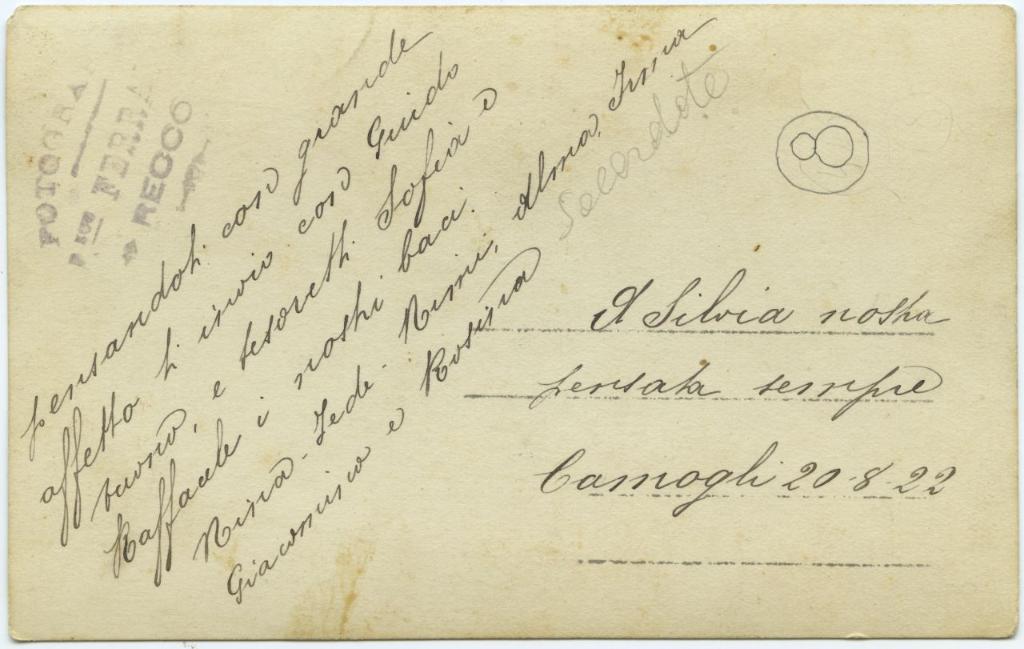 FOTOGRA
FERRA
RECCO
pensandoti con grande
affetto ti invio con Guido
buono, e tesoretti Sofia e
Raffaele i nostri baci.
Nina - Jede - Mimi, Alma, Irma
Giacomino e Rosina
Sacerdote
8
A Silvia nostra
pensata sempre
Camogli 20-8-22